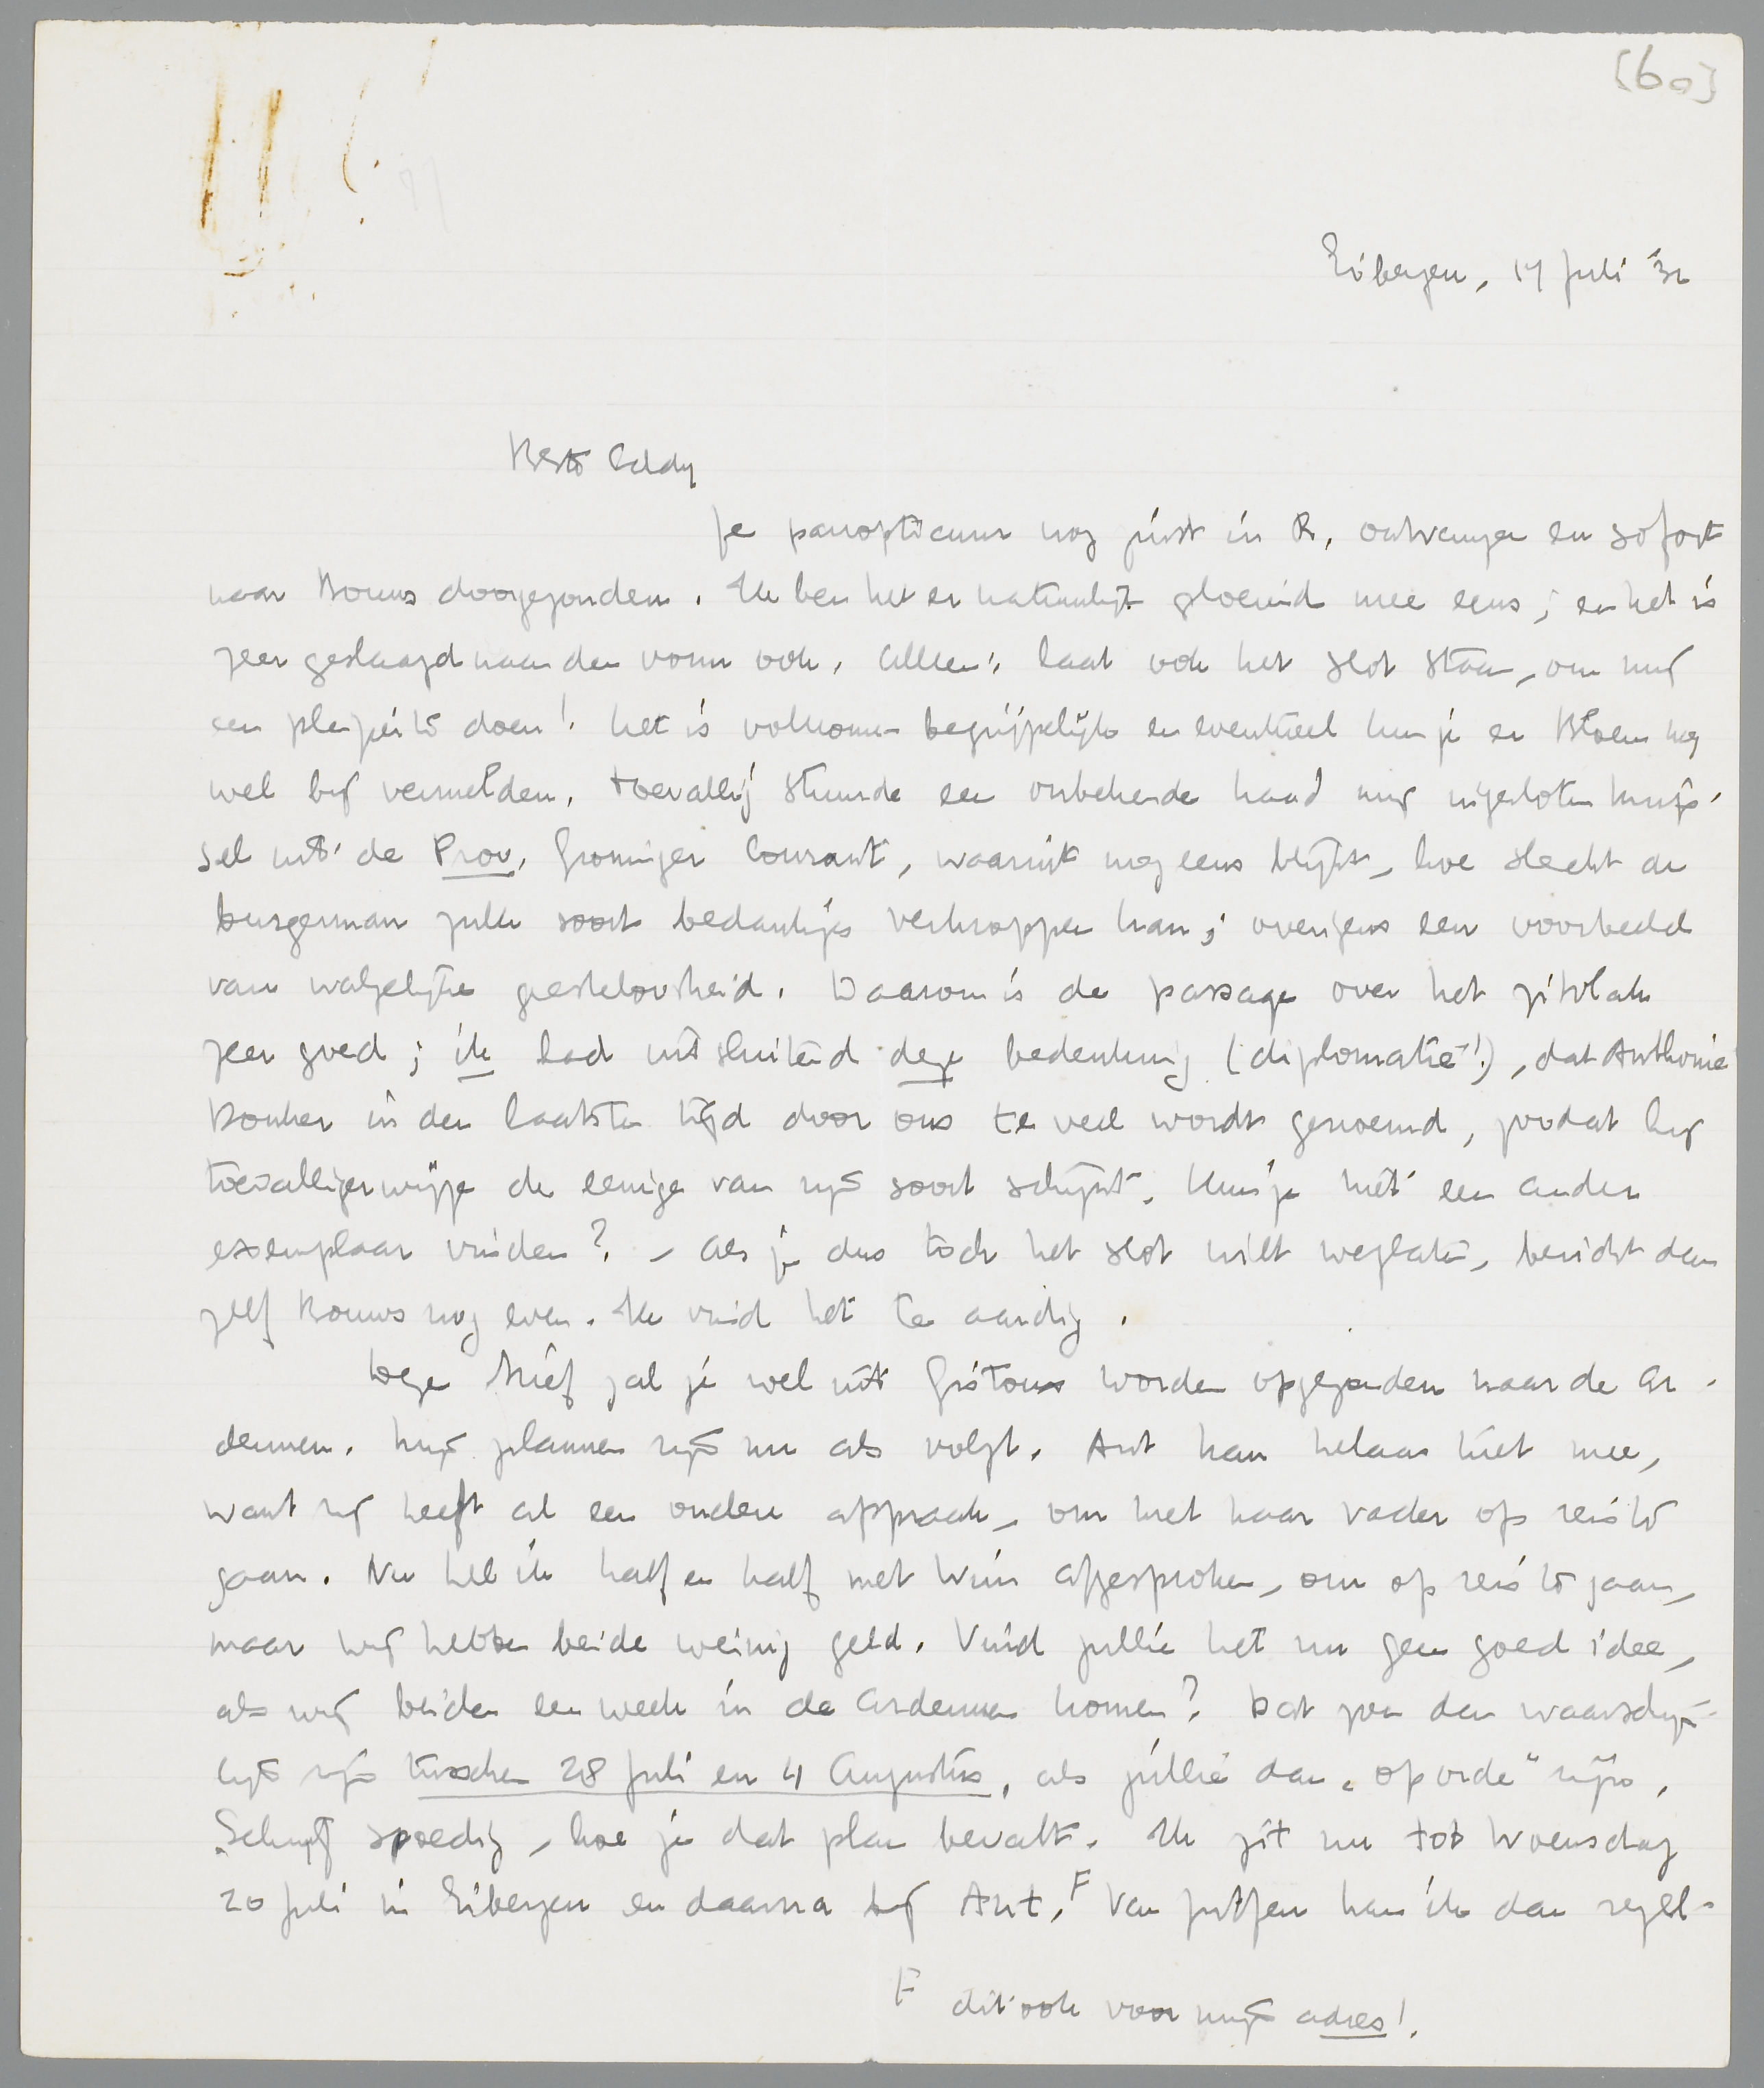 [60]
Eibergen, 17 Juli '32
Beste Eddy
Je panopticum nog juist in R. ontvangen en sofort
naar Bouws doorgezonden. Ik ben het er natuurlijk gloeiend mee eens; en het is
zeer geslaagd naar den vorm ook. Alleen: laat ook het slot staan, om mij
een plezier te doen! Het is volkomen begrijpelijk en eventueel kun je er Bloem nog
wel bij vermelden. Toevallig stuurde een onbekende hand mij ingesloten knip-
sel uit de Prov. Groninger Courant, waaruit nog eens blijkt, hoe slecht de
burgerman zulke soort bedankjes verkroppen kan; overigens een voorbeeld
van walgelijke geesteloosheid. Daarom is de passage over het zitvlak
zeer goed; ik had uitsluitend deze bedenking (diplomatie!), dat Anthonie
Donker in den laatsten tijd door ons te veel wordt genoemd, zoodat hij
toevalligerwijze de eenige van zijn soort schijnt. Kun je niet een ander
exemplaar vinden? - Als je dus toch het slot wilt weglaten, bericht dan
zelf Bouws nog even. Ik vind het te aardig.
Deze brief zal je wel uit Gistoux worden opgezonden naar de Ar-
dennen. Mijn plannen zijn nu als volgt. Ant kan helaas niet mee,
want zij heeft al een oudere afspraak, om met haar vader op reis te
gaan. Nu heb ik half en half met Wim afgesproken, om op reis te gaan,
maar wij hebben beide weinig geld. Vind jullie het nu geen goed idee,
als wij beiden een week in de Ardennen komen? Dat zou dan waarschijn-
lijk zijn tusschen 28 Juli en 4 Augustus, als jullie dan „op orde" zijn.
Schrijf spoedig, hoe je dat plan bevalt. Ik zit nu tot Woensdag
20 Juli in Eibergen en daarna bij Ant.F Van Zutfen kan ik dan regel-
F dit ook voor mijn adres!